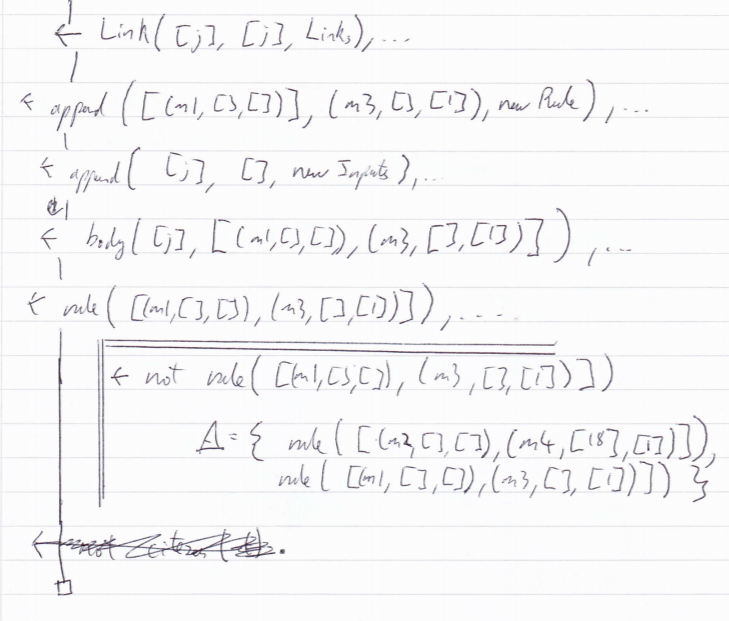 ← Link([j], [j], Links),...
← append([(m1,[],[])], (m3,[],[1]), new Rule),...
← append([j], [], new Inputs),...
← body([j], [(m1,[],[]),(m3,[],[1])]),...
← rule([(m1,[],[]),(m3,[],[1])]),....
← not rule([(m1,[],[]),(m3,[],[1])])
Δ={ rule([(m2,[],[]),(m4,[18],[1])]),
rule([(m1,[],[]),(m3,[],[1])]) }
←